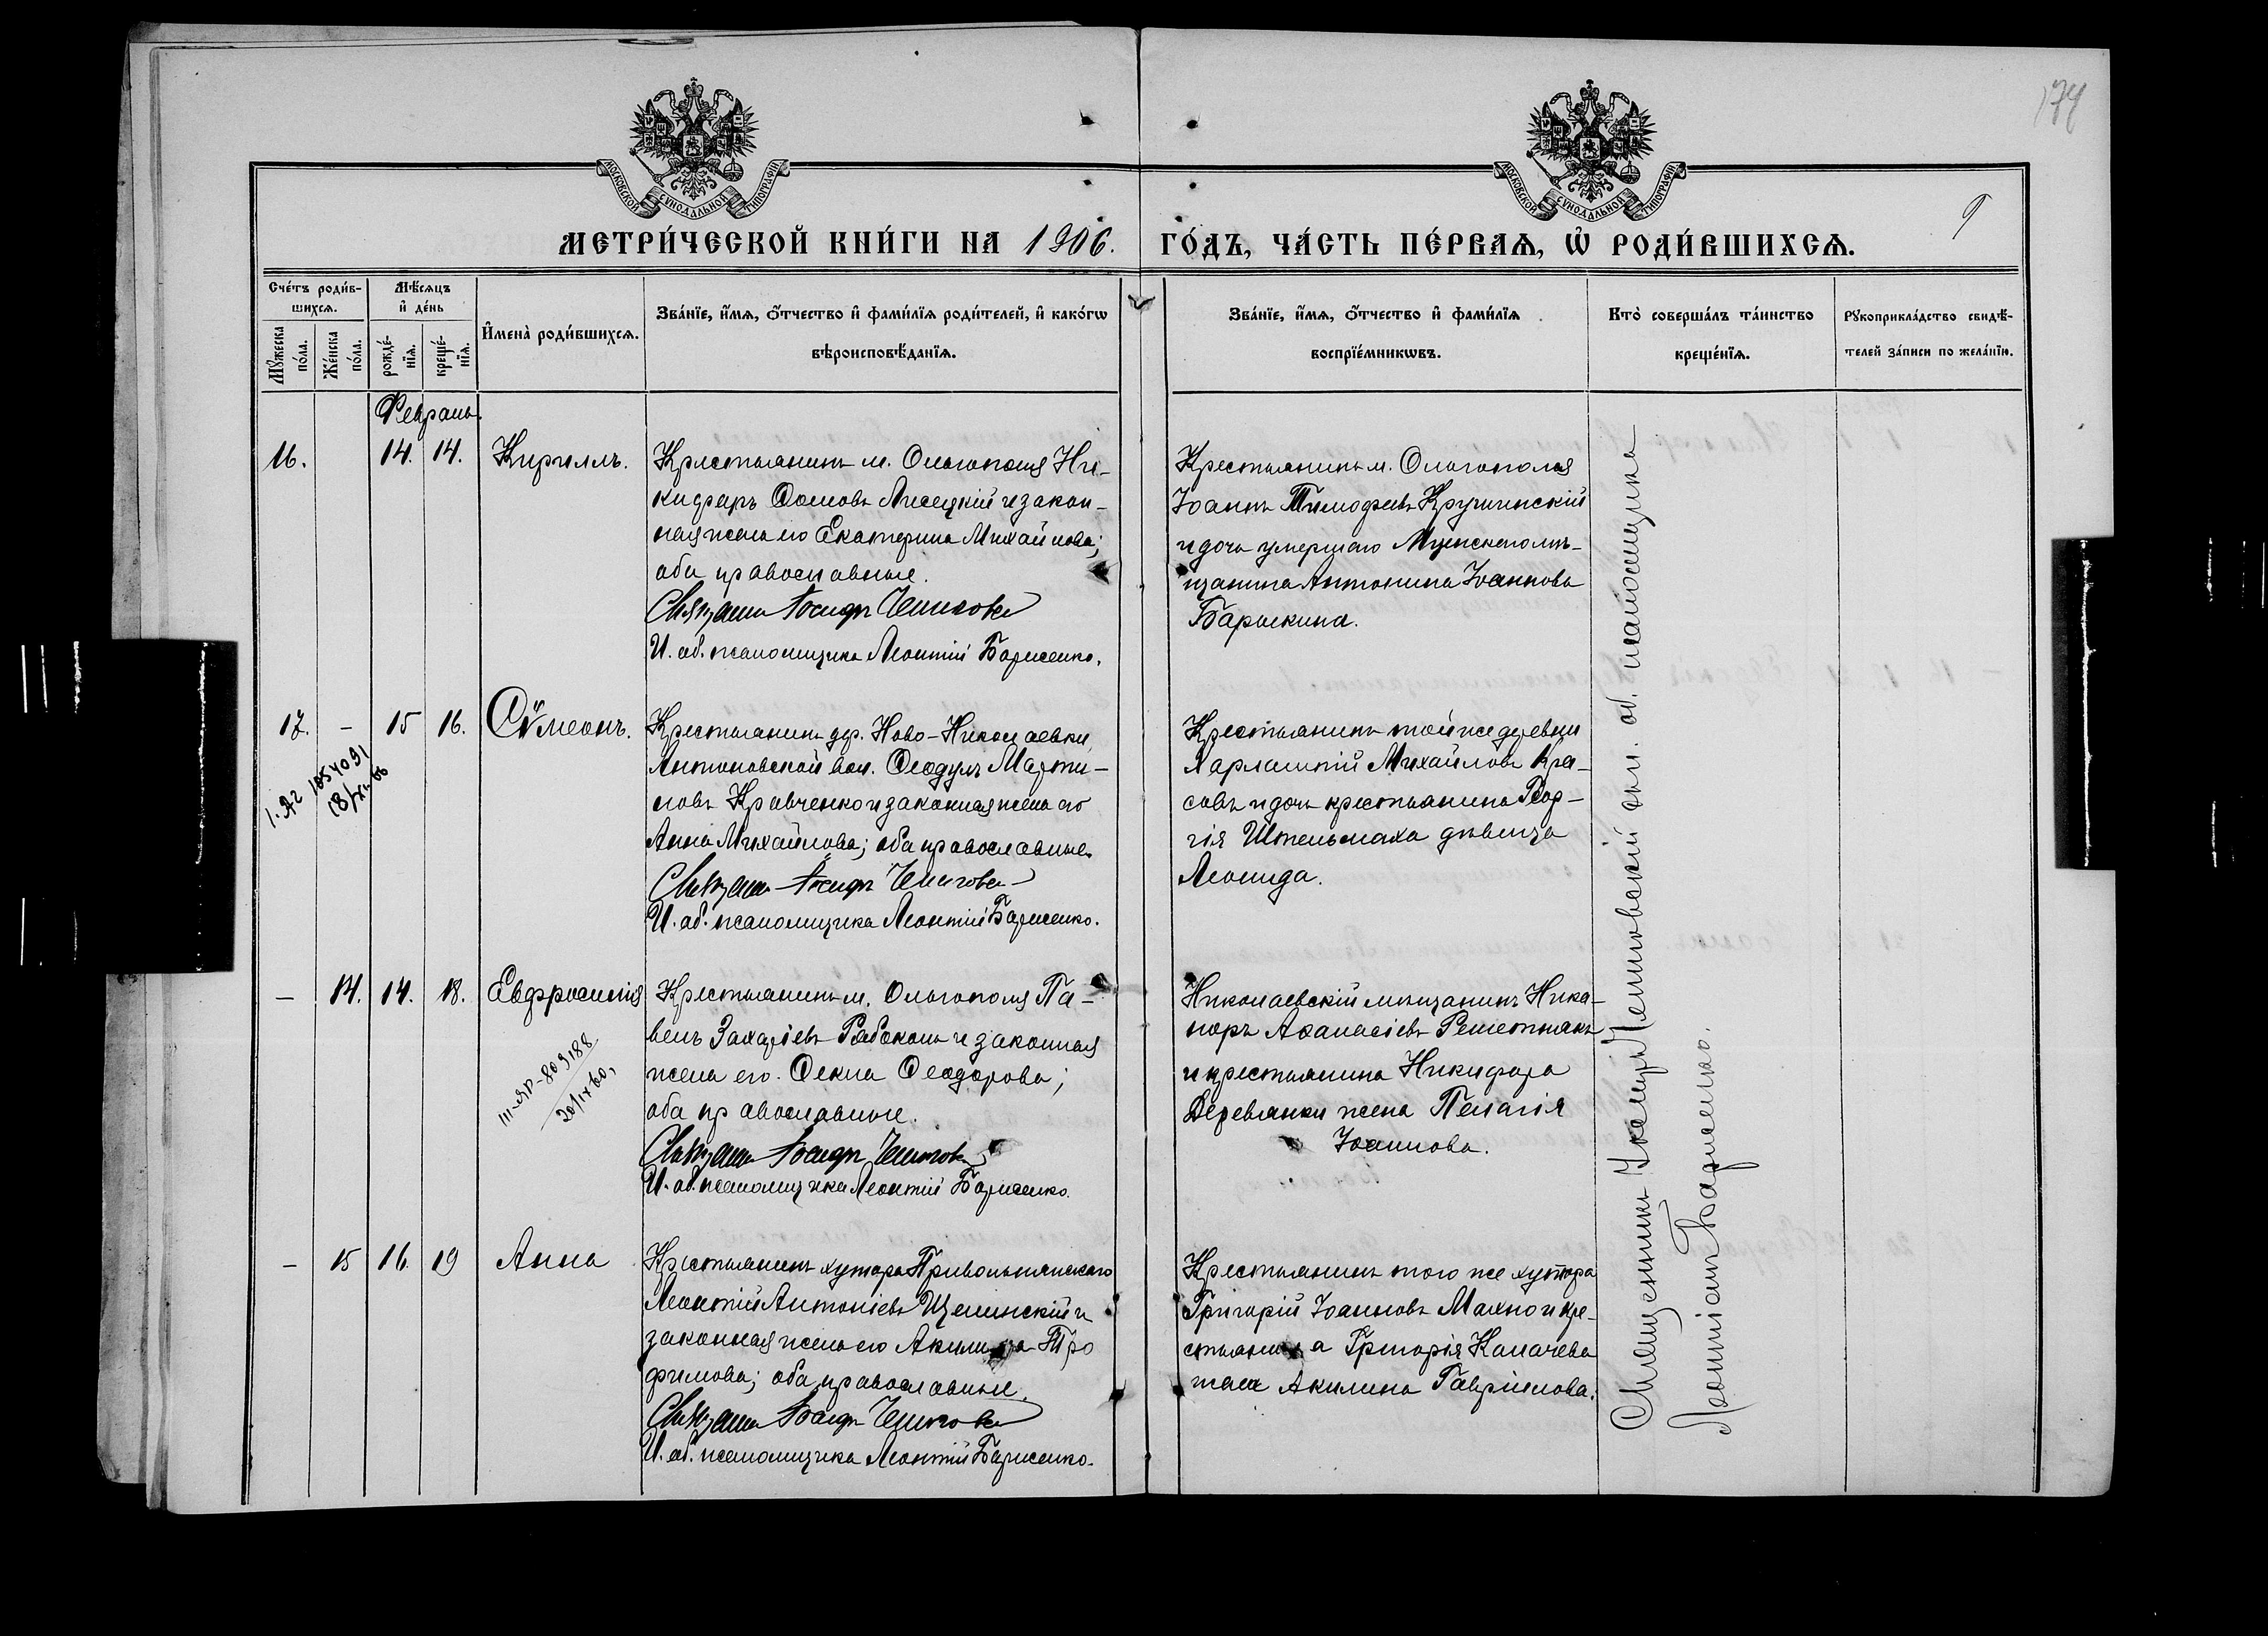 174
9
МОСКОВСКОЙ СѴНОДАЛЬНОЙ ТИПОГРАФІИ.
МОСКОВСКОЙ СѴНОДАЛЬНОЙ ТИПОГРАФІИ.
МЕТРИ́ЧЕСКОЙ КНИ́ГИ НА 1906. ГО́ДЪ, ЧА́СТЬ ПЕ́РВАѦ, Ѡ҆ РОДИ́ВШИХСѦ.
Сче́тъ роди́в-
шихсѧ.
Мꙋжеска по́ла.
Же́нска по́ла.
Мѣ́сѧцъ
и҆ де́нь
рожде́-нїѧ.
креще́-нїѧ.
И҆мена̀ роди́вшихсѧ.
Зва́нїе, и҆́мѧ, ѻ҆́тчество и҆ фами́лїѧ роди́телей, и҆ како́гѡ
вѣроисповѣ́данїѧ.
Зва́нїе, и҆́мѧ, ѻ҆́тчество и҆ фами́лїѧ
воспрїе́мникѡвъ.
Кто̀ соверша́лъ та́инство
креще́нїѧ.
Рꙋкоприкла́дство свидѣ́-
телей за́писи по жела́нїю.
Февраль.
16. 14. 14. Кириллъ.
Крестьянинъ м. Ольгополя Ни-
кифоръ Ѳомовъ Лисецкій и закон-
ная жена его Екатерина Михайлова;
оба православные.
Священникъ Іосифъ
И. об. псаломщика Леонтій Борисенко.
Крестьянинъ м. Ольгополя
Іоаннъ Тимофеевъ Крушинскій
и дочь умершаго Мценскаго мѣ-
щанина Антонина Іоаннова
Барыкина.
17. – 15 16. Сѷмеонъ.
1054091
Крестьянинъ дер. Ново-Николаевки,
Антоновской вол. Ѳеодулъ Марти-
новъ Кравченко и законная жена его
Анна Михайлова; оба православные.
Священникъ Іосифъ
И. об. псаломщика Леонтій Борисенко.
Крестьянинъ той же деревни
Харлампій Михайловъ Кра-
совъ и дочь крестьянина Геор-
гія Штельмаха дѣвица
Леонида.
– 14. 14. 18. Евфросинія
III-ЯР-809188
20/IX 60,
Крестьянинъ м. Ольгополя Па-
велъ Захаріевъ Рябоконь и законная
жена его. Ѳекла Ѳеодорова;
оба православные.
Священникъ Іосифъ
И. об. псаломщика Леонтій Борисенко.
Николаевскій мѣщанинъ Ника-
норъ Аѳанасіевъ Решетнякъ
и крестьянина Никифора
Деревянки жена Пелагія
Іоаннова.
– 15 16. 19 Анна
Крестьянинъ хутора Привольнянскаго
Леонтій Антоніевъ Щепинскій и
законная жена его Акилина Тро
фимова; оба православные.
Священникъ Іосифъ
И. об. псаломщика Леонтій Борисенко.
Крестьянинъ того же хутора
Григорій Іоанновъ Махно и кре-
стьянина Григорія Калачева
жена Акилина Гавріилова.
Священникъ Іосифъ и. об. псаломщика
Леонтій Борисенко.